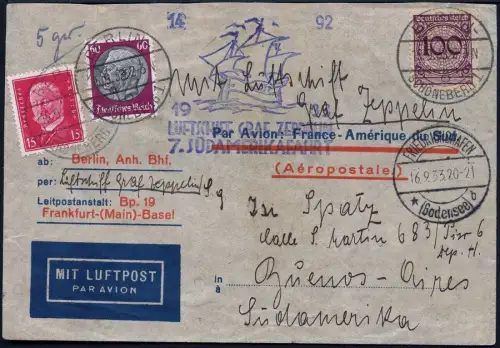 14 92
5 gr.
BERLIN
60 60
Deutsches Reich
15 15
Deutsches Reich
100
SCHÖNEBERG 1
mit Luftschiff
Graf Zeppelin
19
LUFTSCHIFF GRAF ZEPPELIN
7. SÜDAMERIKAFAHRT
Par Avion: France-Amérique du Sud
(Aéropostale)
FRIEDRICHSHAFEN
16.9.33.20-21
(Bodensee)
ab: Berlin, Anh. Bhf.
per: Luftschiff Graf Zeppelin
Leitpostanstalt: Bp. 19
Frankfurt-(Main)-Basel
Spatz
Calle S. Martin 683
Dep. H.
MIT LUFTPOST
PAR AVION
in
à
Buenos-Aires
Südamerika